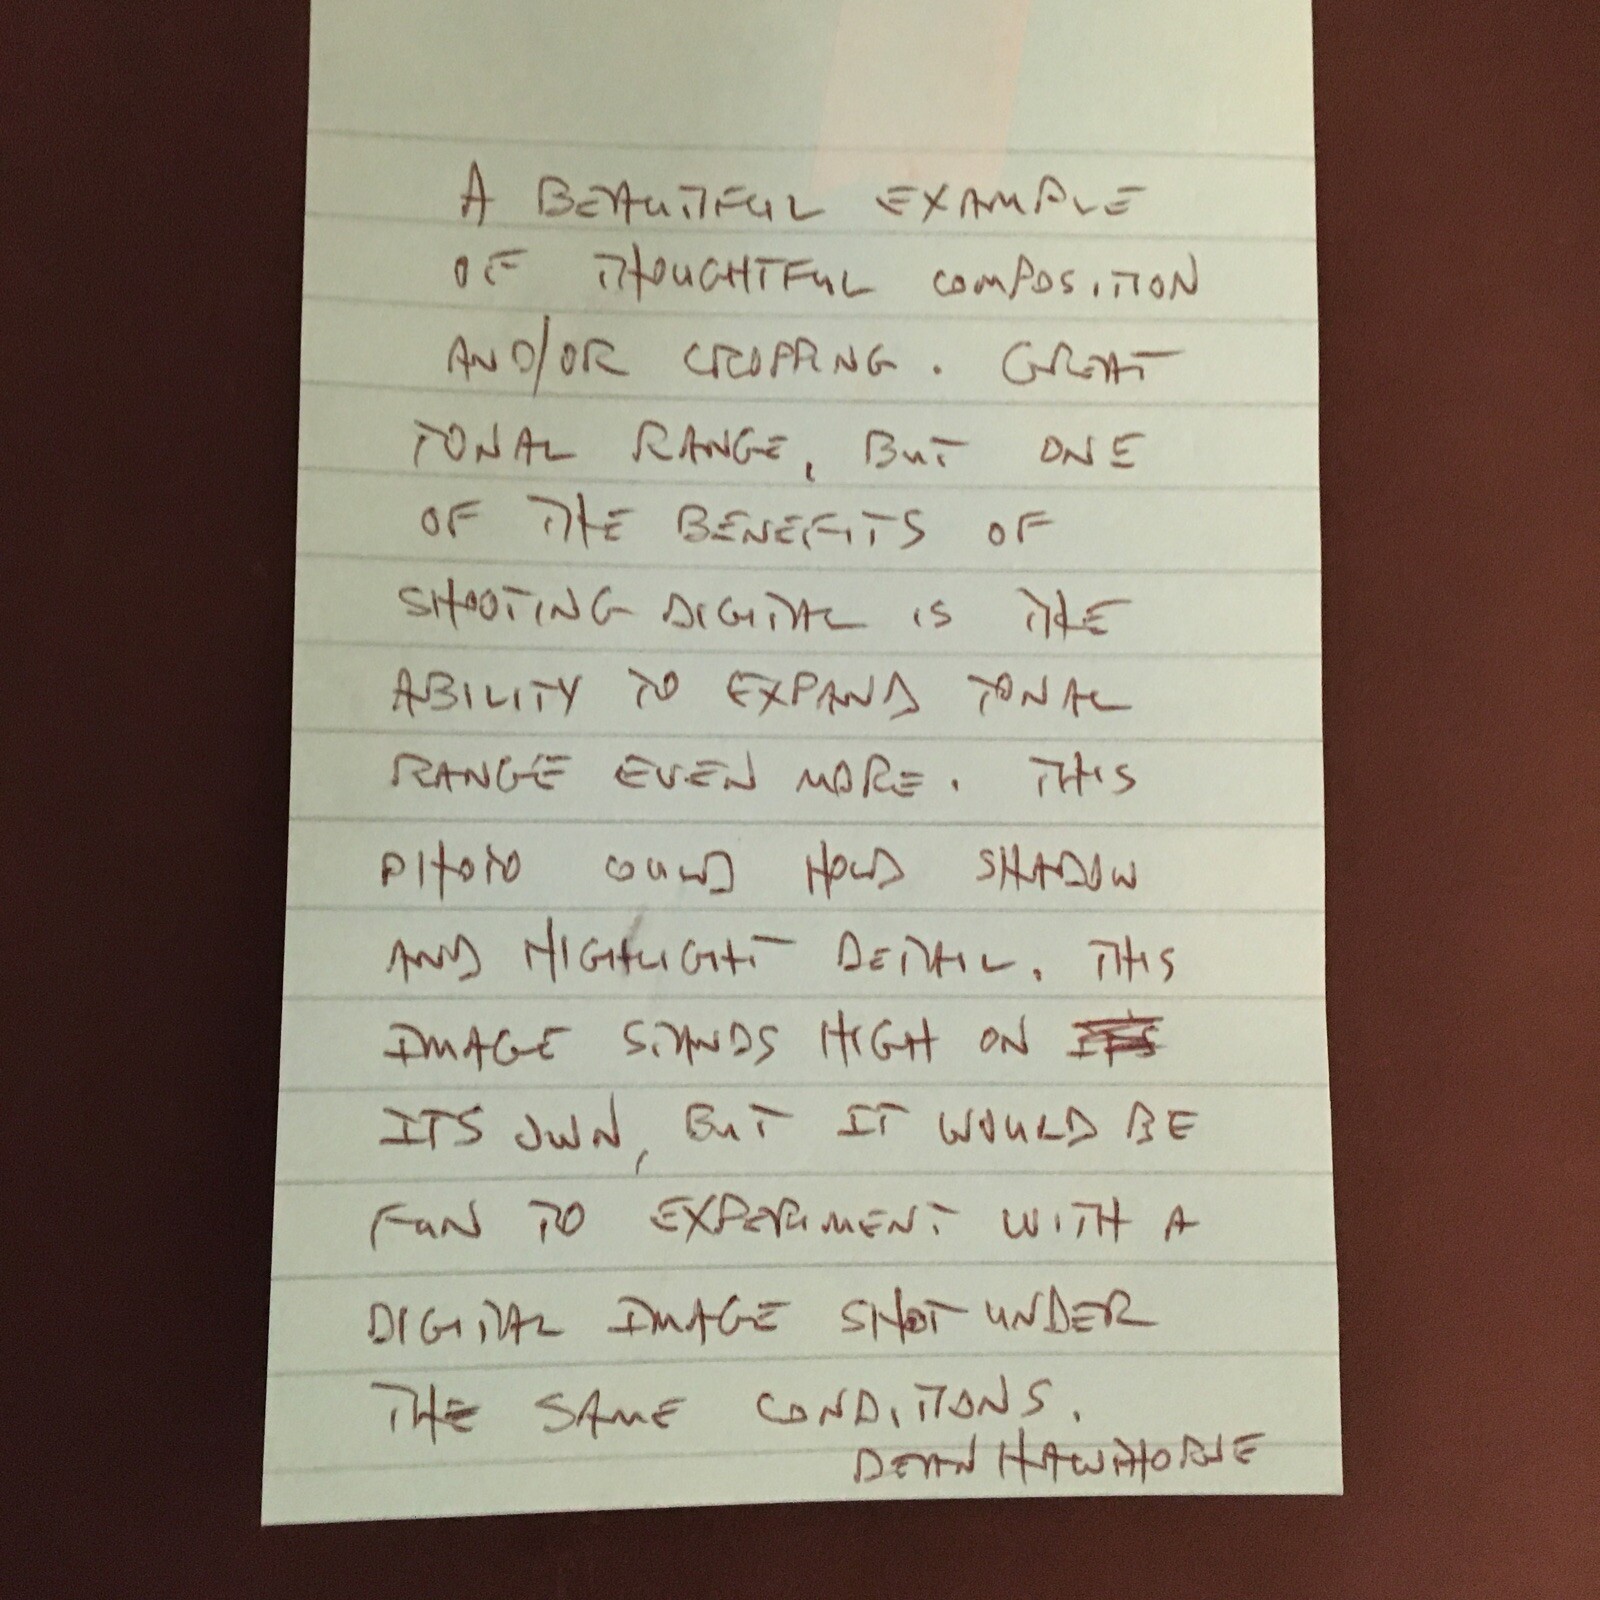 A BEAUTIFUL EXAMPLE
OF THOUGHTFUL COMPOSITION
AND/OR CROPPING. GREAT
TONAL RANGE, BUT ONE
OF THE BENEFITS OF
SHOOTING DIGITAL IS THE
ABILITY TO EXPAND TONAL
RANGE EVEN MORE. THIS
PHOTO COULD HOLD SHADOW
AND HIGHLIGHT DETAIL. THIS
IMAGE STANDS HIGH ON
ITS OWN, BUT IT WOULD BE
FUN TO EXPERIMENT WITH A
DIGITAL IMAGE SHOT UNDER
THE SAME CONDITIONS.
DEAN HAWTHORNE